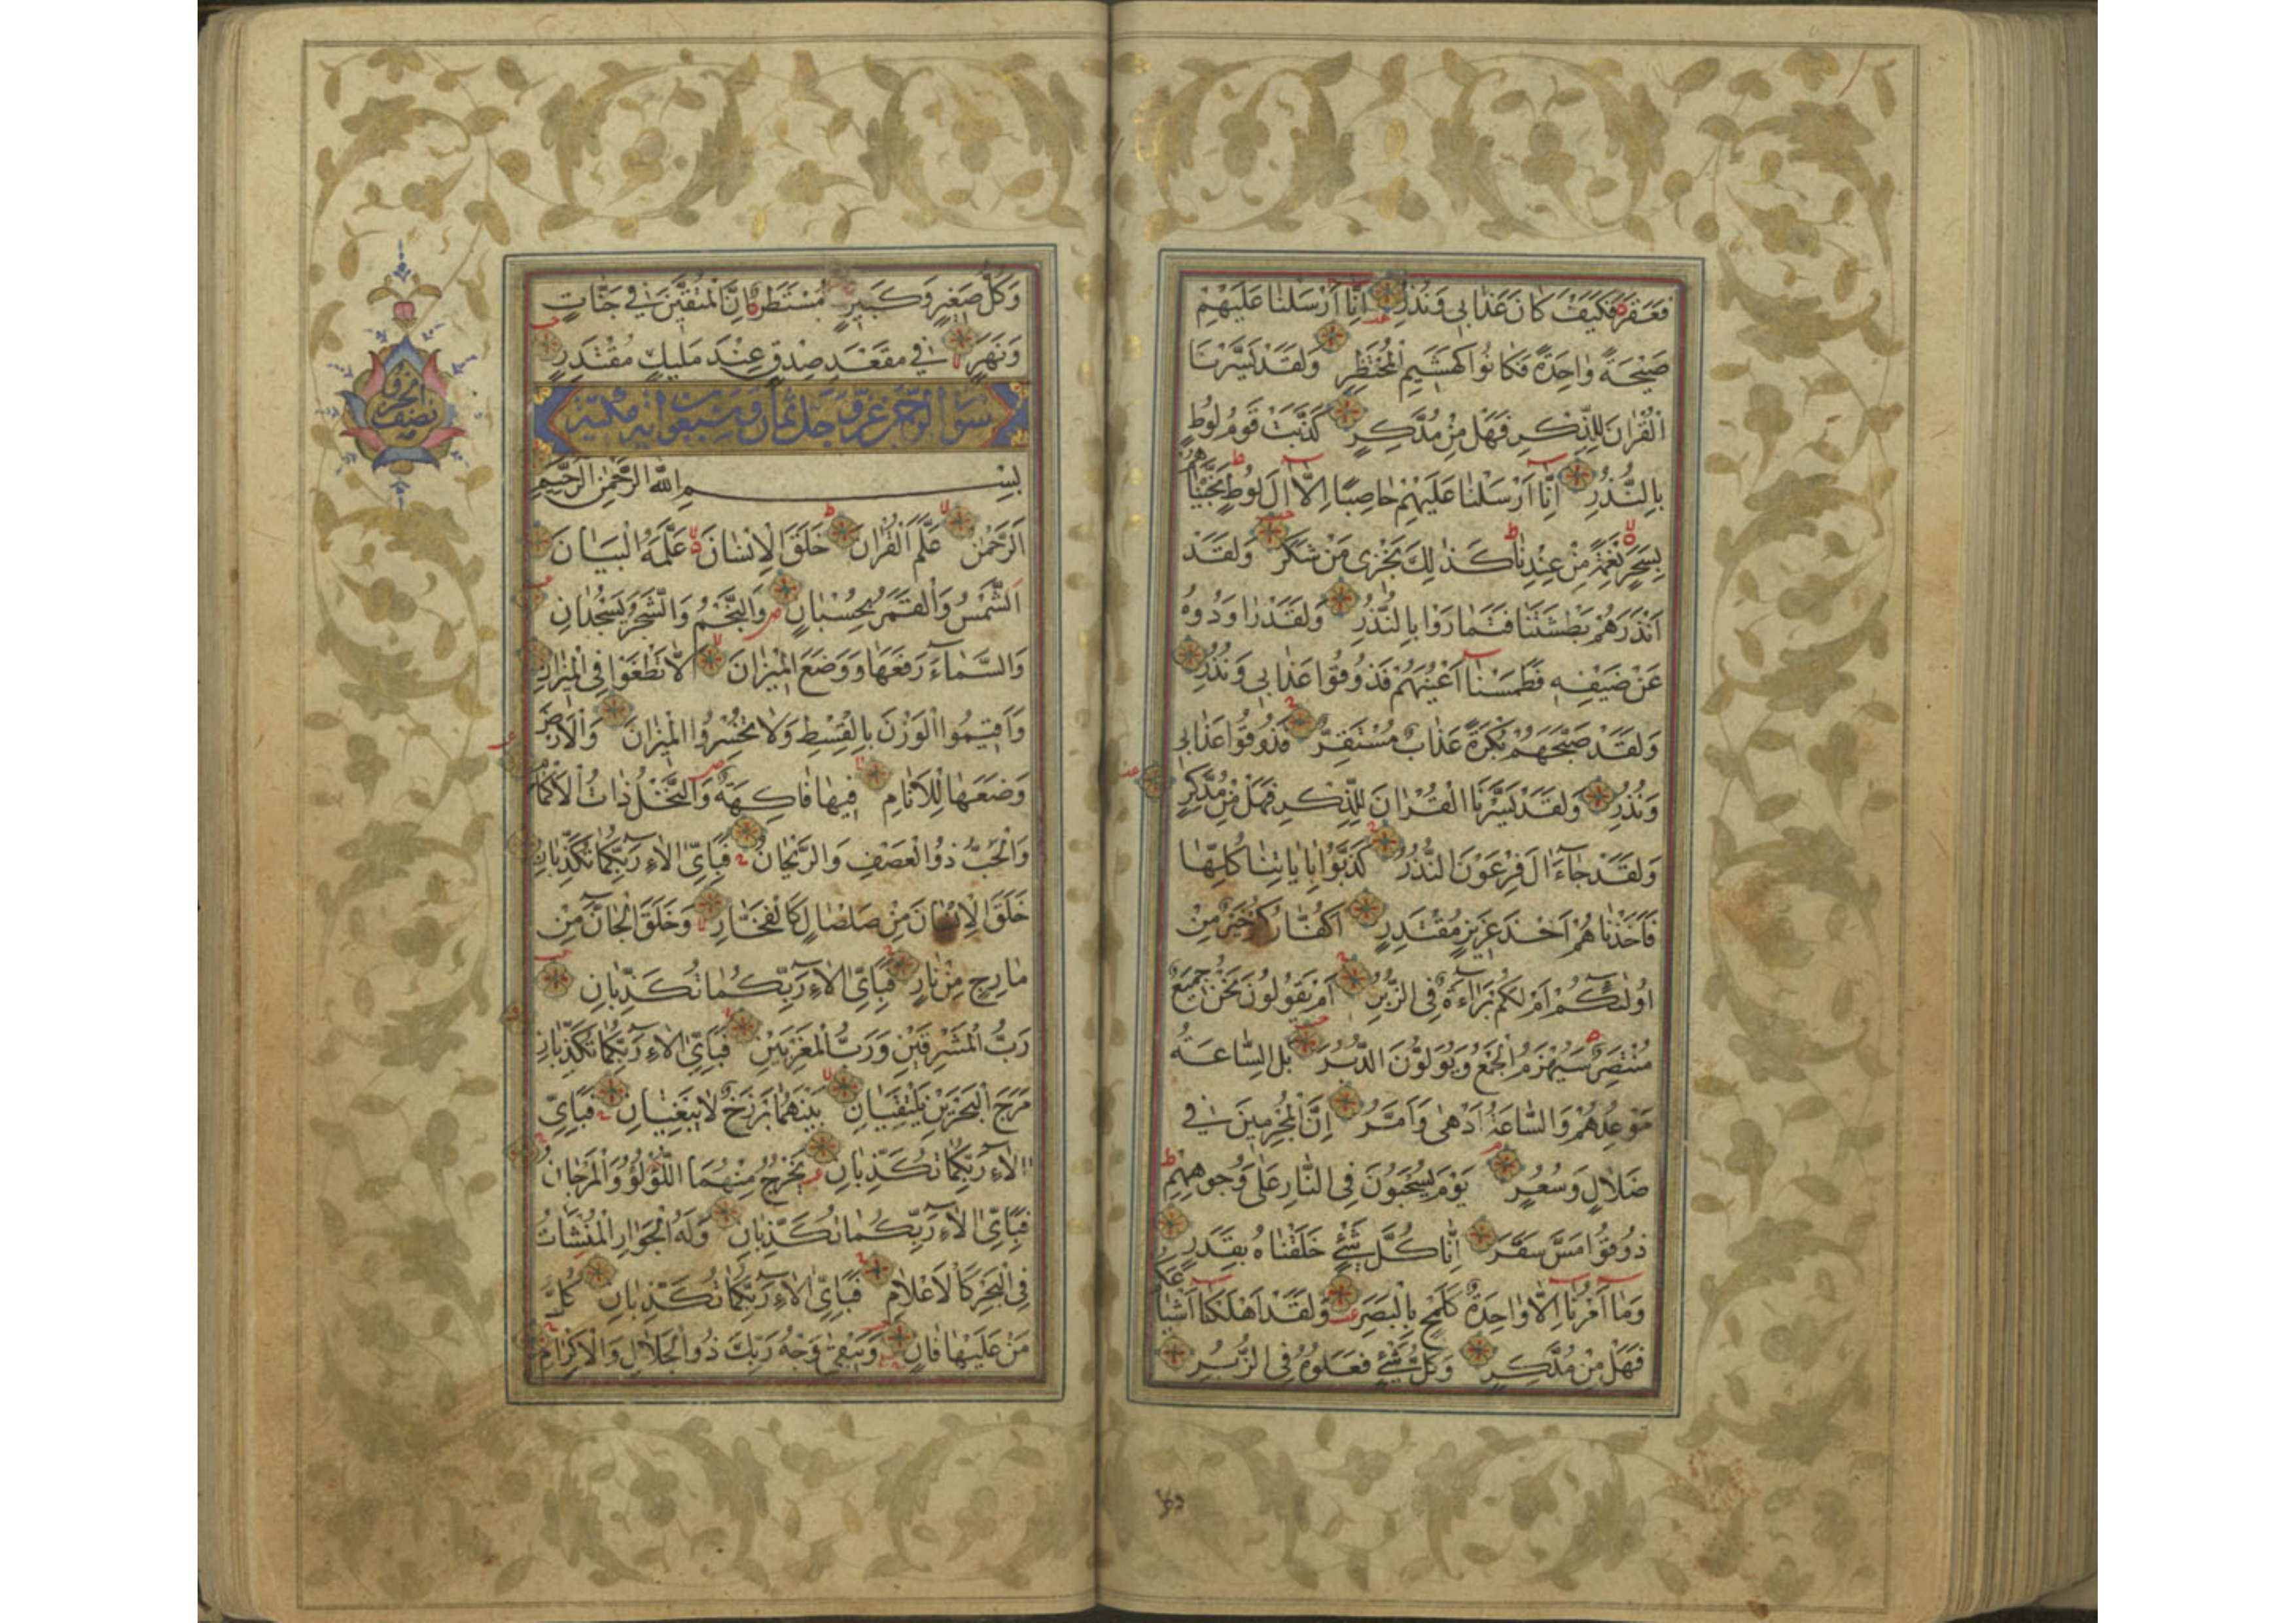 فَعَقَرَ فَكَيْفَ كَانَ عَذَابِي وَنُذُرِ إِنَّا أَرْسَلْنَا عَلَيْهِمْ
صَيْحَةً وَاحِدَةً فَكَانُوا كَهَشِيمِ الْمُحْتَظِرِ وَلَقَدْ يَسَّرْنَا
الْقُرْانَ لِلذِّكْرِ فَهَلْ مِنْ مُدَّكِرٍ كَذَّبَتْ قَوْمُ لُوطٍ
بِالنُّذُرِ إِنَّا أَرْسَلْنَا عَلَيْهِمْ حَاصِبًا إِلَّا الَ لُوطٍ نَجَّيْنَاهُمْ
بِسَحَرٍ نِعْمَةً مِنْ عِنْدِنَا كَذٰلِكَ نَجْزِي مَنْ شَكَرَ وَلَقَدْ
أَنْذَرَهُمْ بَطْشَتَنَا فَتَمَارَوْا بِالنُّذُرِ وَلَقَدْ رَاوَدُوهُ
عَنْ ضَيْفِهِ فَطَمَسْنَا أَعْيُنَهُمْ فَذُوقُوا عَذَابِي وَنُذُرِ
وَلَقَدْ صَبَّحَهُمْ بُكْرَةً عَذَابٌ مُسْتَقِرٌّ فَذُوقُوا عَذَابِي
وَنُذُرِ وَلَقَدْ يَسَّرْنَا الْقُرْانَ لِلذِّكْرِ فَهَلْ مِنْ مُدَّكِرٍ
وَلَقَدْ جَاءَ الَ فِرْعَوْنَ النُّذُرُ كَذَّبُوا بِايَاتِنَا كُلِّهَا
فَأَخَذْنَاهُمْ أَخْذَ عَزِيزٍ مُقْتَدِرٍ أَكُفَّارُكُمْ خَيْرٌ مِنْ
أُولٰئِكُمْ أَمْ لَكُمْ بَرَاءَةٌ فِي الزُّبُرِ أَمْ يَقُولُونَ نَحْنُ جَمِيعٌ
مُنْتَصِرٌ سَيُهْزَمُ الْجَمْعُ وَيُوَلُّونَ الدُّبُرَ بَلِ السَّاعَةُ
مَوْعِدُهُمْ وَالسَّاعَةُ أَدْهٰى وَأَمَرُّ إِنَّ الْمُجْرِمِينَ فِي
ضَلَالٍ وَسُعُرٍ يَوْمَ يُسْحَبُونَ فِي النَّارِ عَلٰى وُجُوهِهِمْ
ذُوقُوا مَسَّ سَقَرَ إِنَّا كُلَّ شَيْءٍ خَلَقْنَاهُ بِقَدَرٍ
وَمَا أَمْرُنَا إِلَّا وَاحِدَةٌ كَلَمْحٍ بِالْبَصَرِ وَلَقَدْ أَهْلَكْنَا أَشْيَاعَكُمْ
فَهَلْ مِنْ مُدَّكِرٍ وَكُلُّ شَيْءٍ فَعَلُوهُ فِي الزُّبُرِ
وَكُلُّ صَغِيرٍ وَكَبِيرٍ مُسْتَطَرٌ إِنَّ الْمُتَّقِينَ فِي جَنَّاتٍ
وَنَهَرٍ فِي مَقْعَدِ صِدْقٍ عِنْدَ مَلِيكٍ مُقْتَدِرٍ
سورة الرحمن عز وجل ثمان وسبعون اية مكية
بِسْمِ اللّٰهِ الرَّحْمٰنِ الرَّحِيمِ
اَلرَّحْمٰنُ عَلَّمَ الْقُرْانَ خَلَقَ الْإِنْسَانَ عَلَّمَهُ الْبَيَانَ
اَلشَّمْسُ وَالْقَمَرُ بِحُسْبَانٍ وَالنَّجْمُ وَالشَّجَرُ يَسْجُدَانِ
وَالسَّمَاءَ رَفَعَهَا وَوَضَعَ الْمِيزَانَ أَلَّا تَطْغَوْا فِي الْمِيزَانِ
وَأَقِيمُوا الْوَزْنَ بِالْقِسْطِ وَلَا تُخْسِرُوا الْمِيزَانَ وَالْأَرْضَ
وَضَعَهَا لِلْأَنَامِ فِيهَا فَاكِهَةٌ وَالنَّخْلُ ذَاتُ الْأَكْمَامِ
وَالْحَبُّ ذُو الْعَصْفِ وَالرَّيْحَانُ فَبِأَيِّ الَاءِ رَبِّكُمَا تُكَذِّبَانِ
خَلَقَ الْإِنْسَانَ مِنْ صَلْصَالٍ كَالْفَخَّارِ وَخَلَقَ الْجَانَّ مِنْ
مَارِجٍ مِنْ نَارٍ فَبِأَيِّ الَاءِ رَبِّكُمَا تُكَذِّبَانِ
رَبُّ الْمَشْرِقَيْنِ وَرَبُّ الْمَغْرِبَيْنِ فَبِأَيِّ الَاءِ رَبِّكُمَا تُكَذِّبَانِ
مَرَجَ الْبَحْرَيْنِ يَلْتَقِيَانِ بَيْنَهُمَا بَرْزَخٌ لَا يَبْغِيَانِ فَبِأَيِّ
الَاءِ رَبِّكُمَا تُكَذِّبَانِ يَخْرُجُ مِنْهُمَا اللُّؤْلُؤُ وَالْمَرْجَانُ
فَبِأَيِّ الَاءِ رَبِّكُمَا تُكَذِّبَانِ وَلَهُ الْجَوَارِ الْمُنْشَآتُ
فِي الْبَحْرِ كَالْأَعْلَامِ فَبِأَيِّ الَاءِ رَبِّكُمَا تُكَذِّبَانِ كُلُّ
مَنْ عَلَيْهَا فَانٍ وَيَبْقٰى وَجْهُ رَبِّكَ ذُو الْجَلَالِ وَالْإِكْرَامِ
نصف الحزب
وكل